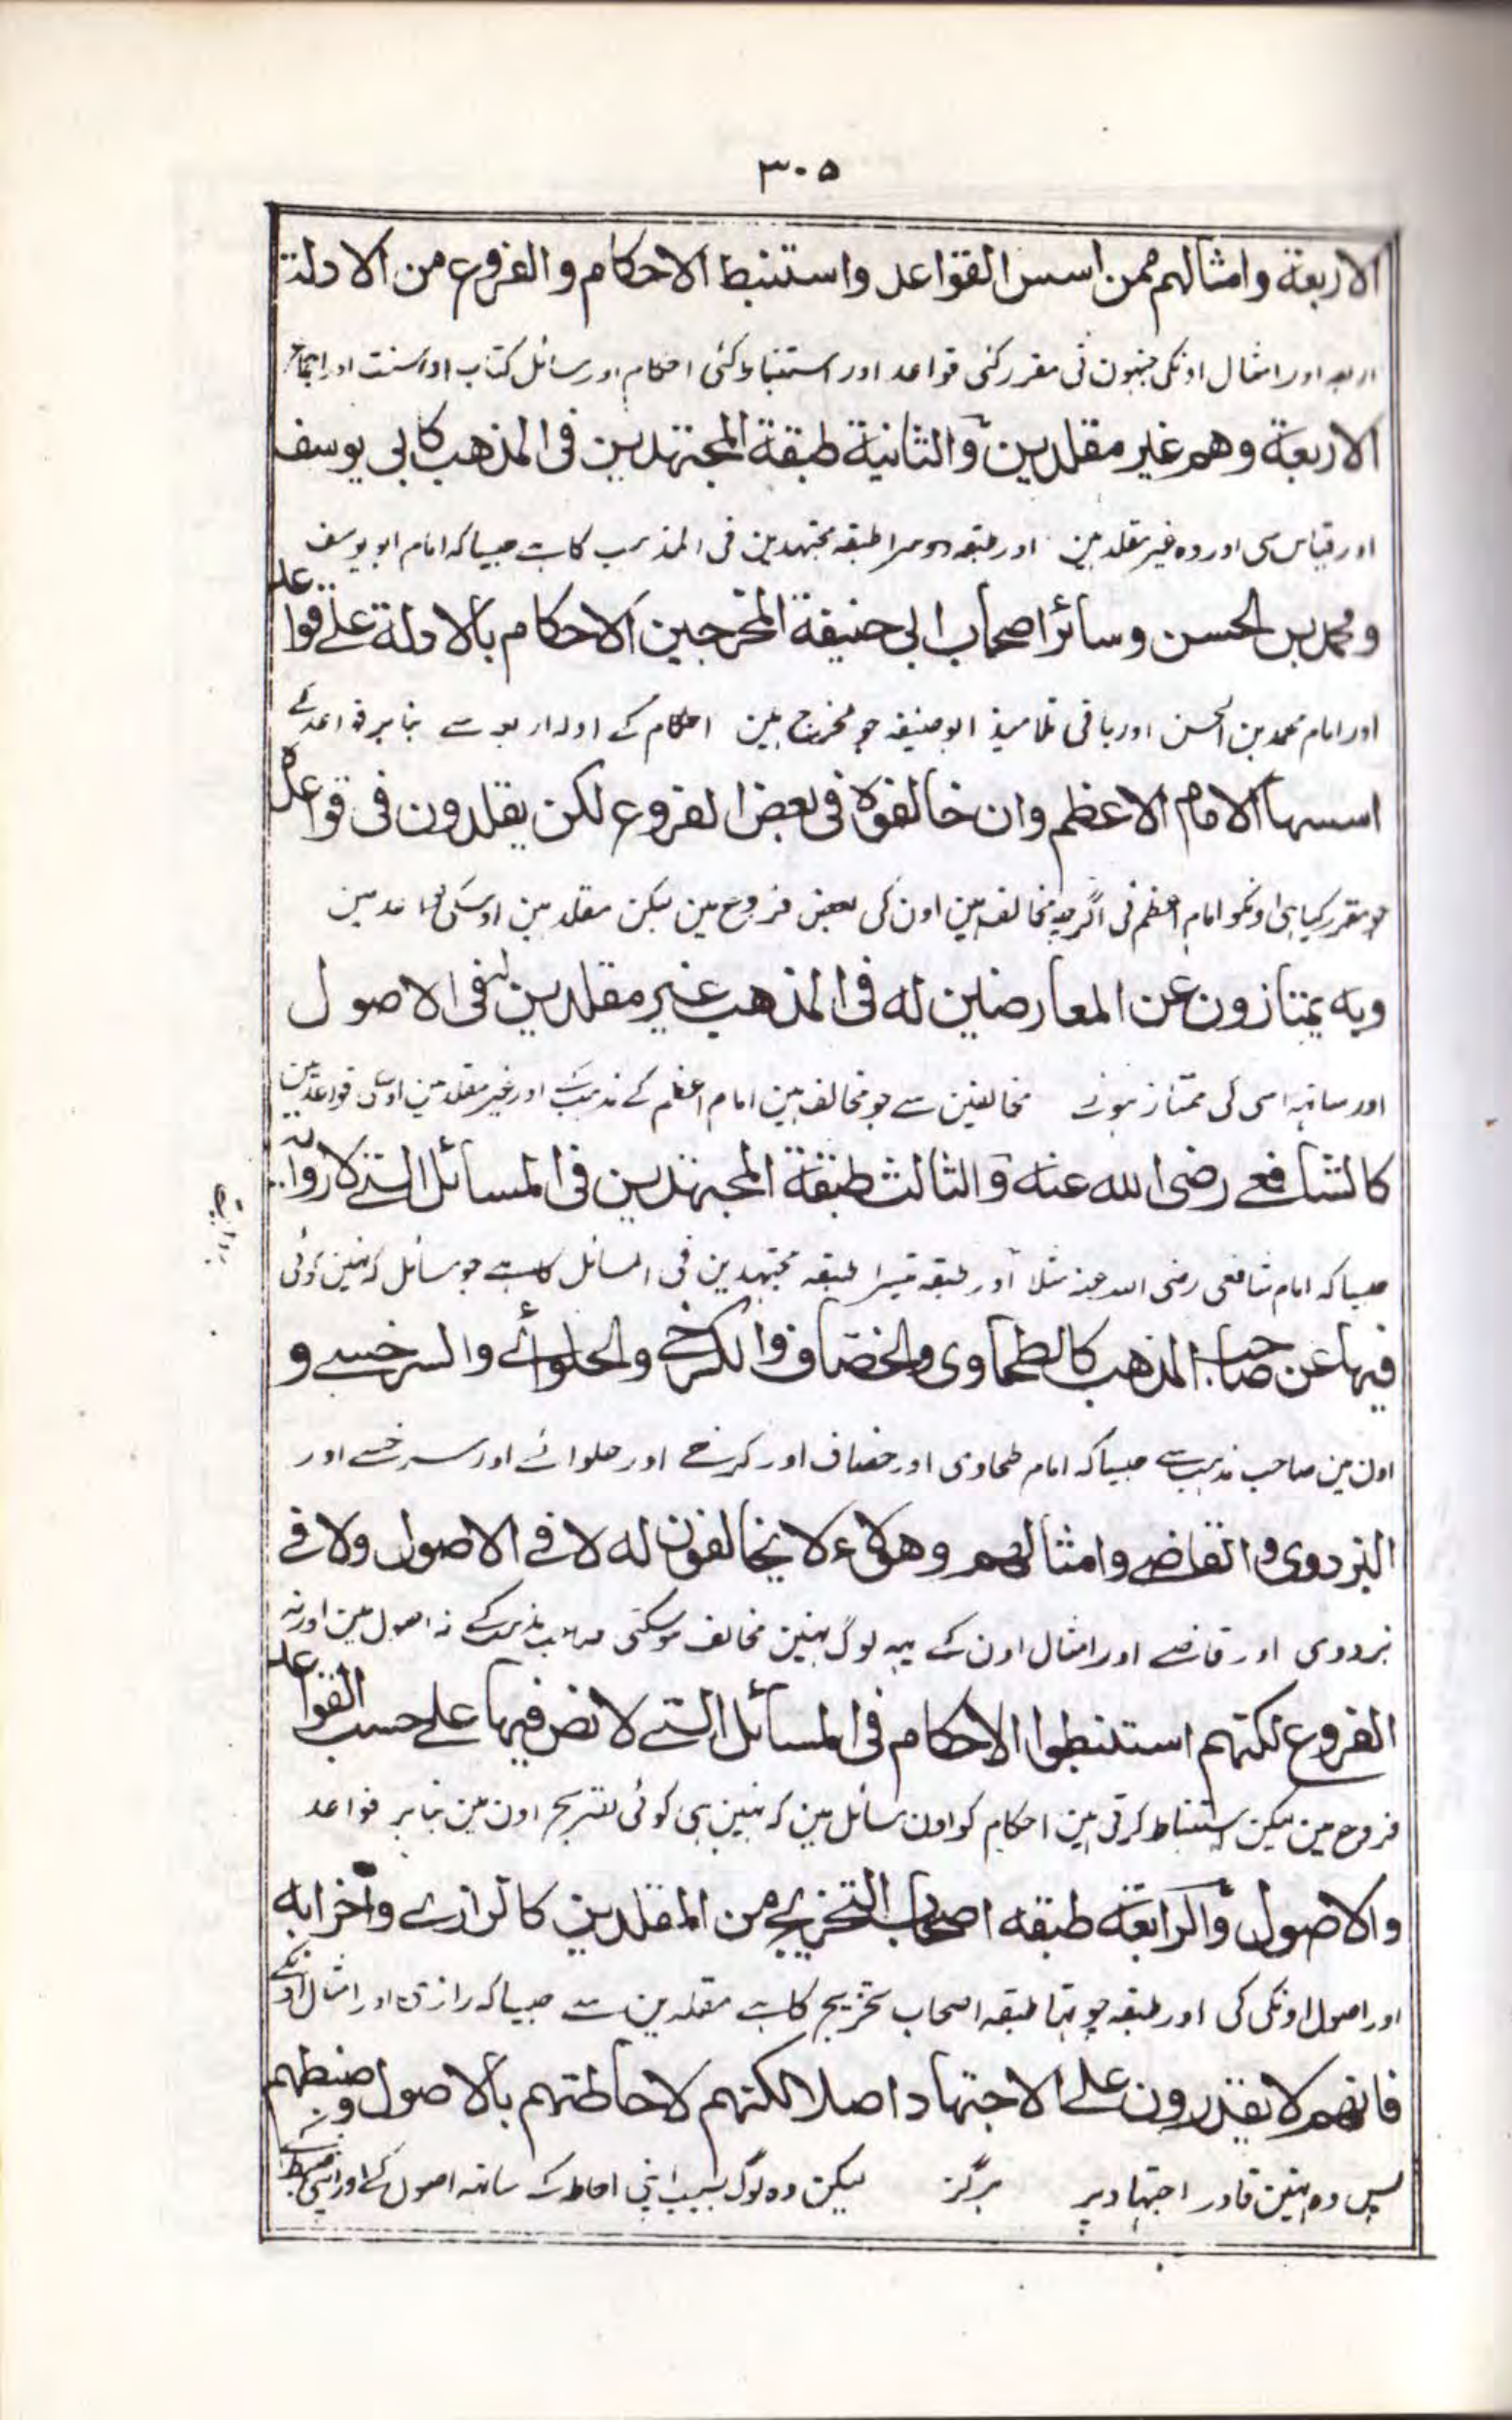 ٣٠٥
الاربعة وامثالهم ممن اسس القواعد واستنبط الاحكام والفروع من الادلة
اربعہ اور امثال اونکی جنہون نی مقرر کئی قواعد اور استنباط کئی احکام اور مسائل کتاب اور سنت اور اجماع
الاربعة وهم غير مقلدين والثانية طبقة المجتهدين فى المذهب كابى يوسف
اور قیاس سی اور وہ غیر مقلد ہین اور طبقہ دوسرا طبقہ مجتہدین فی المذہب کا ہے جیسا کہ امام ابو یوسف
ومحمد بن الحسن وسائر اصحاب ابى حنيفة المخرجين الاحكام بالادلة على قواعد
اور امام محمد بن الحسن اور باقی تلامیذ ابو حنیفہ جو مخرج ہین احکام کے ادلہ اربعہ سے بنا بر قواعد کے
اسسها الامام الاعظم وان خالفوه فى بعض الفروع لكن يقلدون فى قواعده
جو مقرر کیا ہی اونکو امام اعظم نی اگرچہ مخالف ہین اون کی بعض فروع مین لیکن مقلد ہین اوسکی قواعد مین
وبه يمتازون عن المعارضين له فى المذهب غير مقلدين له فى الاصول
اور ساتہہ اسی کی ممتاز ہوئے مخالفین سے جو مخالف ہین امام اعظم کے مذہب کے اور غیر مقلد ہین اوسکی قواعد مین
كالشافعے رضى الله عنه والثالث طبقة المجتهدين فى المسائل التے لا رواية
روایت
جیسا کہ امام شافعی رضی اللہ عنہ مثلا اور طبقہ تیسرا طبقہ مجتہدین فی المسائل کا ہے جو مسائل کہ نہین کوئی
فيها عن صاحب المذهب كالطحاوى والخصاف والكرخے والحلوائے والسرخسے و
اون مین صاحب مذہب سے جیسا کہ امام طحاوی اور خصاف اور کرخے اور حلوائے اور سرخسے اور
البزدوى والقاضے وامثالهم وهؤلاء لا يخالفون له لا فے الاصول ولا فے
بزدوی اور قاضے اور امثال اون کے یہہ لوگ نہین مخالف ہو سکتی صاحب مذہب کے نہ اصول مین اور نہ
الفروع لكنهم استنبطوا الاحكام فى المسائل التے لا نص فيها علے حسب القواعد
فروع مین لیکن استنباط کرتی ہین احکام کو اون مسائل مین کہ نہین ہی کوئی تصریح اون مین بنا بر قواعد
والاصول والرابعة طبقه اصحاب التخريج من المقلدين كالرازے واضرابه
اور اصول اونکی کی اور طبقہ چوتہا طبقہ اصحاب تخریج کا ہے مقلدین سے جیسا کہ رازی اور امثال اونکے
فانهم لا يقدرون على الاجتهاد اصلا لكنهم لاحاطتهم بالاصول وضبطهم
پس وہ نہین قادر اجتہاد پر ہرگز لیکن وہ لوگ بسبب اپنی احاطہ کے ساتہہ اصول کے اور اپنی ضبط